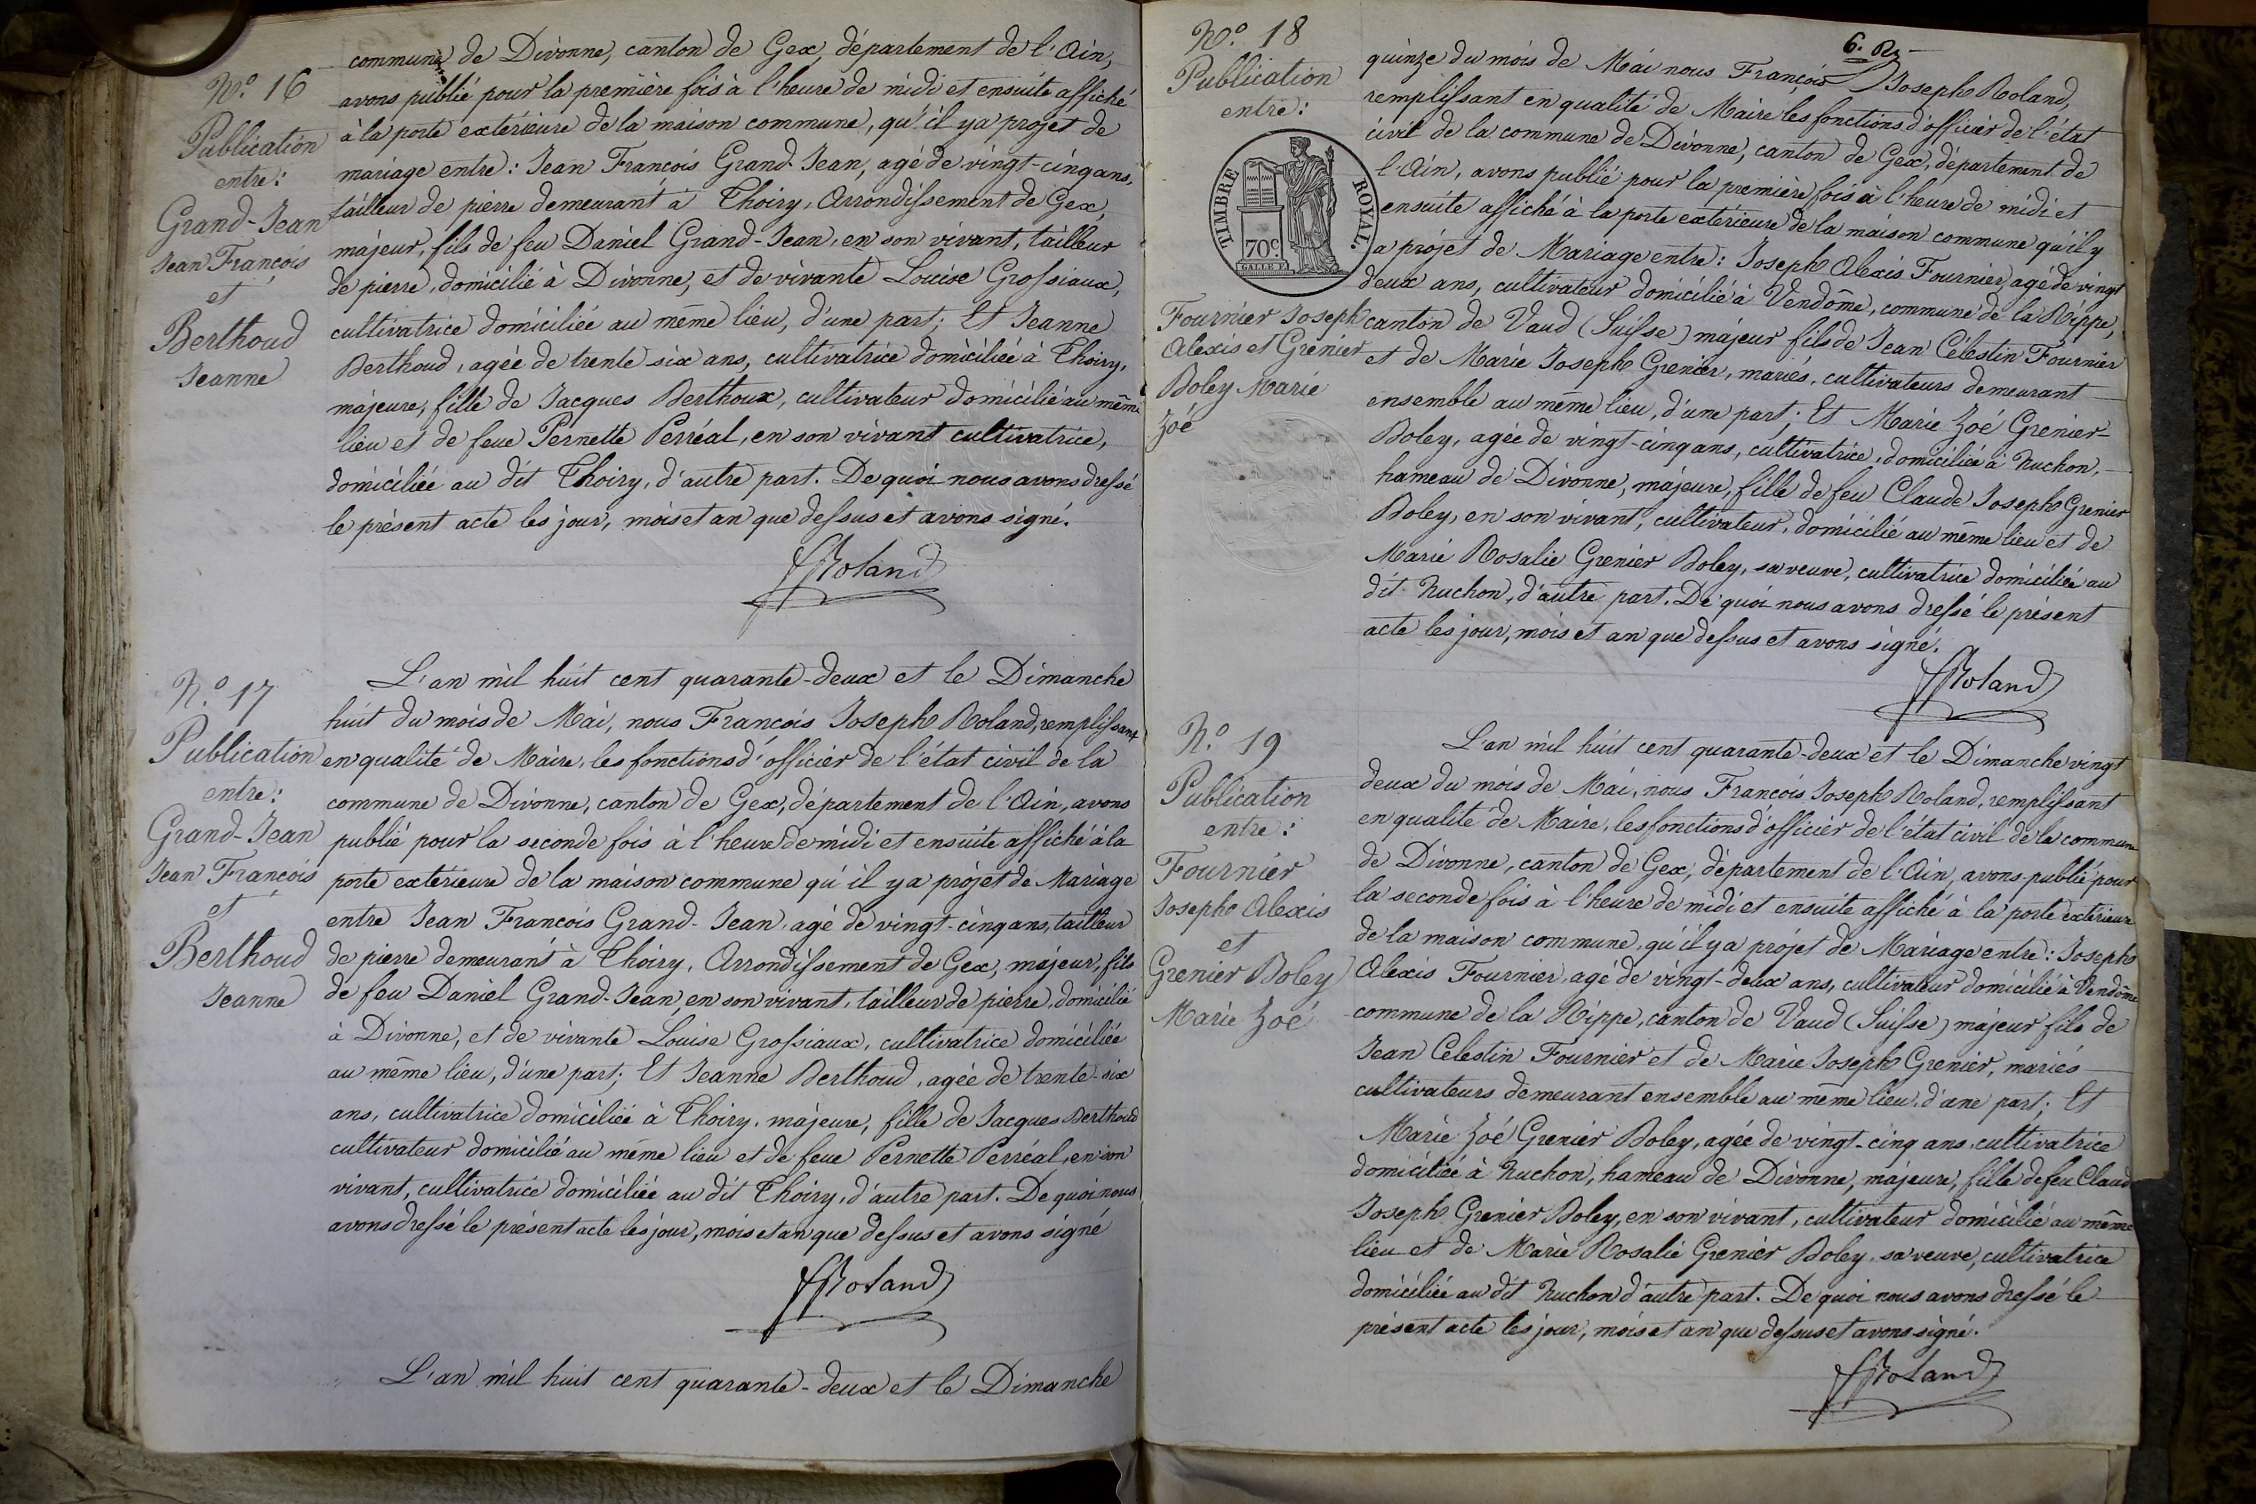 commune de Divonne, canton de Gex, département de l'Ain,
N.o 16
Publication
entre:
Grand-Jean
Jean François
et
Berthoud
Jeanne
avons publié pour la première fois à l'heure de midi et ensuite affiché
à la porte extérieure de la maison commune, qu'il y a projet de
mariage entre: Jean François Grand-Jean, agé de vingt-cinq ans,
tailleur de pierre demeurant à Thoiry, Arrondissement de Gex,
majeur, fils de feu Daniel Grand-Jean, en son vivant, tailleur
de pierre, domicilié à Divonne, et de vivante Louise Grossiaux,
cultivatrice domiciliée au même lieu, d'une part; Et Jeanne
Berthoud, agée de trente six ans, cultivatrice domiciliée à Thoiry,
majeure, fille de Jacques Berthoux, cultivateur domicilié au même
lieu et de feue Pernette Perréal, en son vivant cultivatrice,
domiciliée au dit Thoiry, d'autre part. De quoi nous avons dressé
le présent acte les jour, mois et an que dessus et avons signé.
FJRoland
N.o 17
Publication
entre:
Grand-Jean
Jean François
et
Berthoud
Jeanne
L'an mil huit cent quarante-deux et le Dimanche
huit du mois de Mai, nous François Joseph Roland, remplissant
en qualité de Maire, les fonctions d'officier de l'état civil de la
commune de Divonne, canton de Gex, département de l'Ain, avons
publié pour la seconde fois à l'heure de midi et ensuite affiché à la
porte extérieure de la maison commune qu'il y a projet de Mariage
entre Jean François Grand-Jean, agé de vingt-cinq ans, tailleur
de pierre demeurant à Thoiry, Arrondissement de Gex, majeur, fils
de feu Daniel Grand-Jean, en son vivant, tailleur de pierre, domicilié
à Divonne, et de vivante Louise Grossiaux, cultivatrice domiciliée
au même lieu, d'une part; Et Jeanne Berthoud, agée de trente-six
ans, cultivatrice domiciliée à Thoiry, majeure, fille de Jacques Berthoud
cultivateur domicilié au même lieu et de feue Pernette Perréal, en son
vivant, cultivatrice domiciliée au dit Thoiry, d'autre part. De quoi nous
avons dressé le présent acte les jour, mois et an que dessus et avons signé
FJRoland
L'an mil huit cent quarante-deux et le Dimanche
6.
N.o 18
Publication
entre:
TIMBRE ROYAL.
70c.
Fournier Joseph
Alexis et Grenier
Boley Marie
Zoé
quinze du mois de Mai nous François Joseph Roland,
remplissant en qualité de Maire les fonctions d'officier de l'état
civil de la commune de Divonne, canton de Gex, département de
l'Ain, avons publié pour la première fois à l'heure de midi et
ensuite affiché à la porte extérieure de la maison commune qu'il y
a projet de Mariage entre: Joseph Alexis Fournier, agé de vingt
deux ans, cultivateur domicilié à Vendôme, commune de la Rippe,
canton de Vaud (Suisse) majeur fils de Jean Célestin Fournier
et de Marie Joseph Grenier, mariés, cultivateurs demeurant
ensemble au même lieu, d'une part; Et Marie Zoé Grenier-
Boley, agée de vingt-cinq ans, cultivatrice, domiciliée à Ruchon,
hameau de Divonne, majeure, fille de feu Claude Joseph Grenier
Boley, en son vivant, cultivateur, domicilié au même lieu et de
Marie Rosalie Grenier Boley, sa veuve, cultivatrice domiciliée au
dit Ruchon, d'autre part. De quoi nous avons dressé le présent
acte les jour, mois et an que dessus et avons signé.
FJRoland
N.o 19
Publication
entre:
Fournier
Joseph Alexis
et
Grenier Boley
Marie Zoé
L'an mil huit cent quarante-deux et le Dimanche vingt
deux du mois de Mai, nous François Joseph Roland, remplissant
en qualité de Maire, les fonctions d'officier de l'état civil de la commune
de Divonne, canton de Gex, département de l'Ain, avons publié pour
la seconde fois à l'heure de midi et ensuite affiché à la porte extérieure
de la maison commune, qu'il y a projet de Mariage entre: Joseph
Alexis Fournier, agé de vingt-deux ans, cultivateur domicilié à Vendôme
commune de la Rippe, canton de Vaud (Suisse) majeur fils de
Jean Celestin Fournier et de Marie Joseph Grenier, mariés
cultivateurs demeurant ensemble au même lieu, d'une part; Et
Marie Zoé Grenier Boley, agée de vingt-cinq ans, cultivatrice
domiciliée à Ruchon, hameau de Divonne, majeure, fille de feu Claud
Joseph Grenier Boley, en son vivant, cultivateur domicilié au même
lieu et de Marie Rosalie Grenier Boley, sa veuve, cultivatrice
domiciliée au dit Ruchon d'autre part. De quoi nous avons dressé le
présent acte les jour, mois et an que dessus et avons signé.
FJRoland